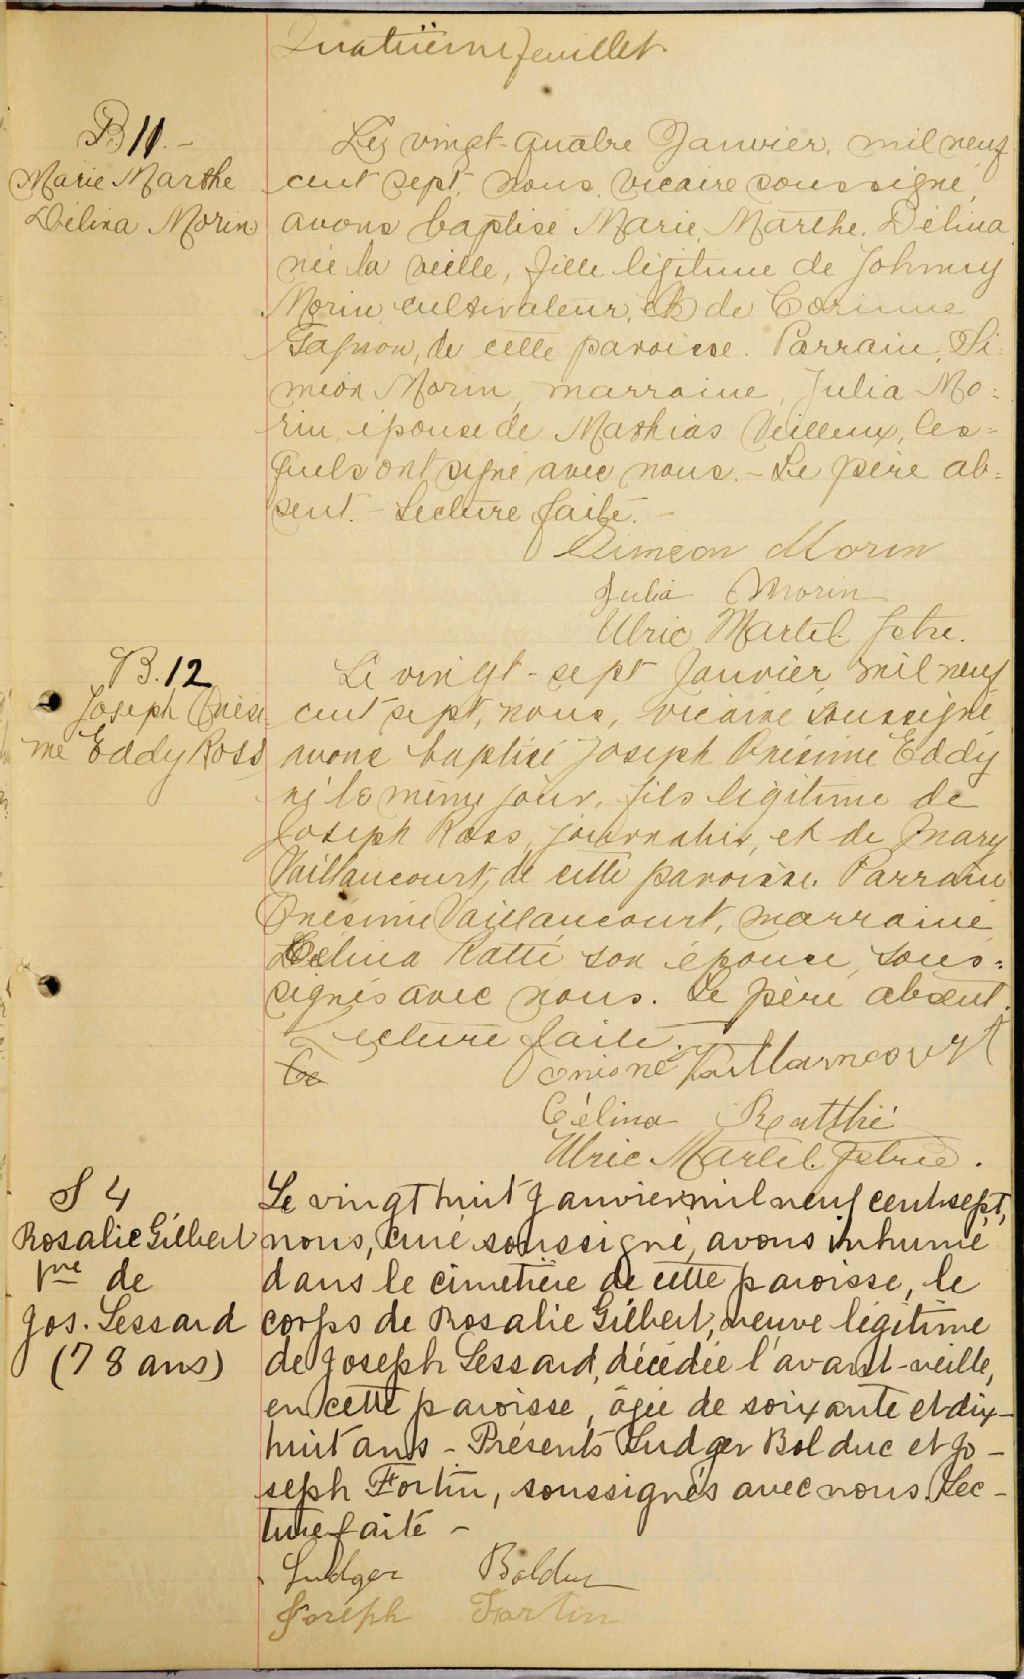 Quatrième feuillet.
B 11. -
Marie Marthe
Délina Morin
Le vingt-quatre Janvier, mil neuf
cent sept, nous, vicaire soussigné,
avons baptisé Marie, Marthe, Délina
née la veille, fille légitime de Johnny
Morin cultivateur, et de Corinne
Gagnon, de cette paroisse. Parrain, Si-
méon Morin, marraine, Julia Mo=
rin, épouse de Mathias Veilleux, les=
quels ont signé avec nous. - Le père ab=
sent. - Lecture faite. -
Simeon Morin
Julia Morin
Ulric Martel ptre.
B. 12
Joseph Onési
me Eddy Ross
Le vingt-sept Janvier, mil neuf
cent sept, nous, vicaire soussigné
avons baptisé Joseph Onésime Eddy
né le même jour, fils légitime de
Joseph Ross, journalier, et de Mary
Vaillancourt, de cette paroisse. Parrain
Onésime Vaillancourt, marraine
Célina Ratté son épouse, sous=
signés avec nous. Le père absent.
Lecture faite. -
Vaillancourt
Célina Ratthé
Ulric Martel. ptre.
S 4
Rosalie Gilbert
Vve de
Jos. Lessard
(78 ans)
Le vingt huit Janvier mil neuf cent sept,
nous, curé soussigné, avons inhumé
dans le cimetière de cette paroisse, le
corps de Rosalie Gilbert, veuve légitime
de Joseph Lessard, décédée l'avant-veille,
en cette paroisse, âgée de soixante et dix-
huit ans - Présents Ludger Bolduc et Jo-
seph Fortin, soussignés avec nous. Lec-
ture faite -
Ludger Bolduc
Joseph Fortin